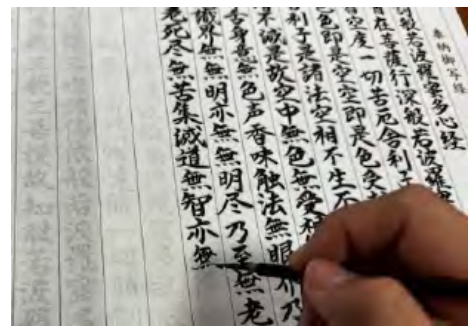 奉納御写経
訶般若波羅蜜多心経
自在菩薩行深般若波羅蜜多
皆空度一切苦厄舎利子
色即是空空即是色受
利子是諸法空相不生不
不減是故空中無色無受想
舌身意無色声香味触法無眼界乃
識界無無明亦無無明尽乃至無老
老死尽無苦集滅道無智亦無
依般若波羅蜜多
三藐三菩提故知般若波羅